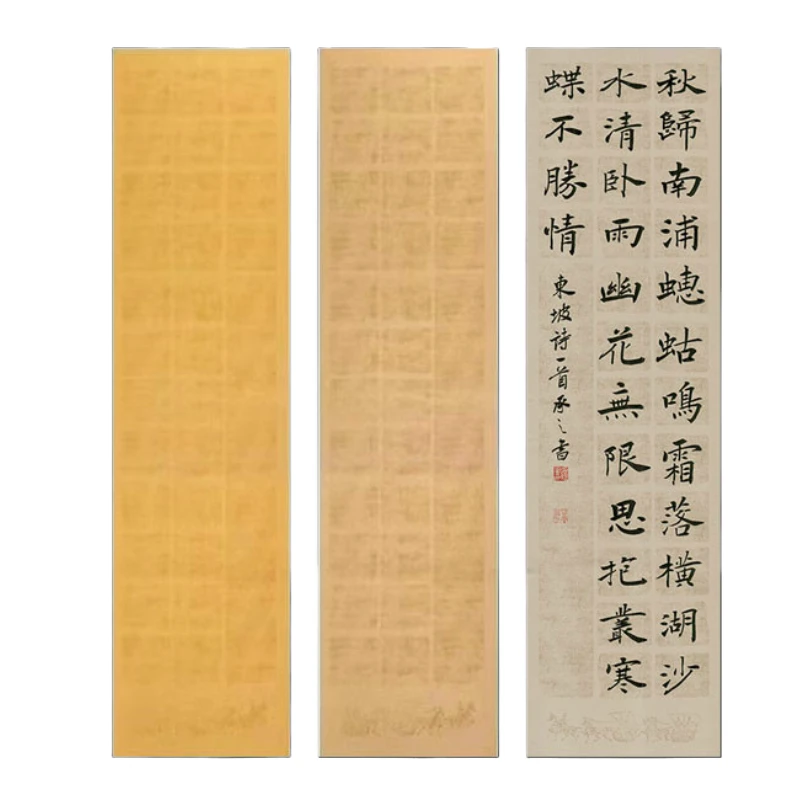 秋歸南浦蟪蛄鳴霜落橫湖沙
水清卧雨幽花無限思抱叢寒
蝶不勝情
東坡詩一首承之書